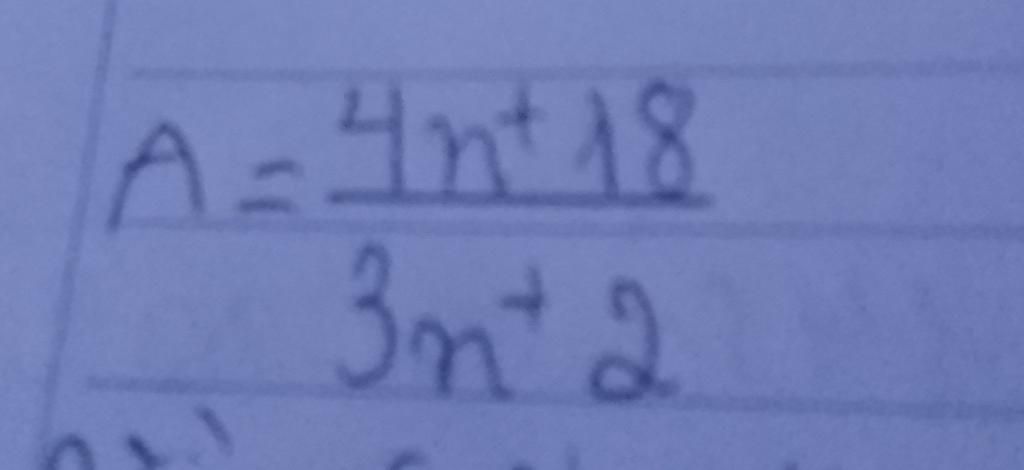 A = 4n + 18
3n + 2